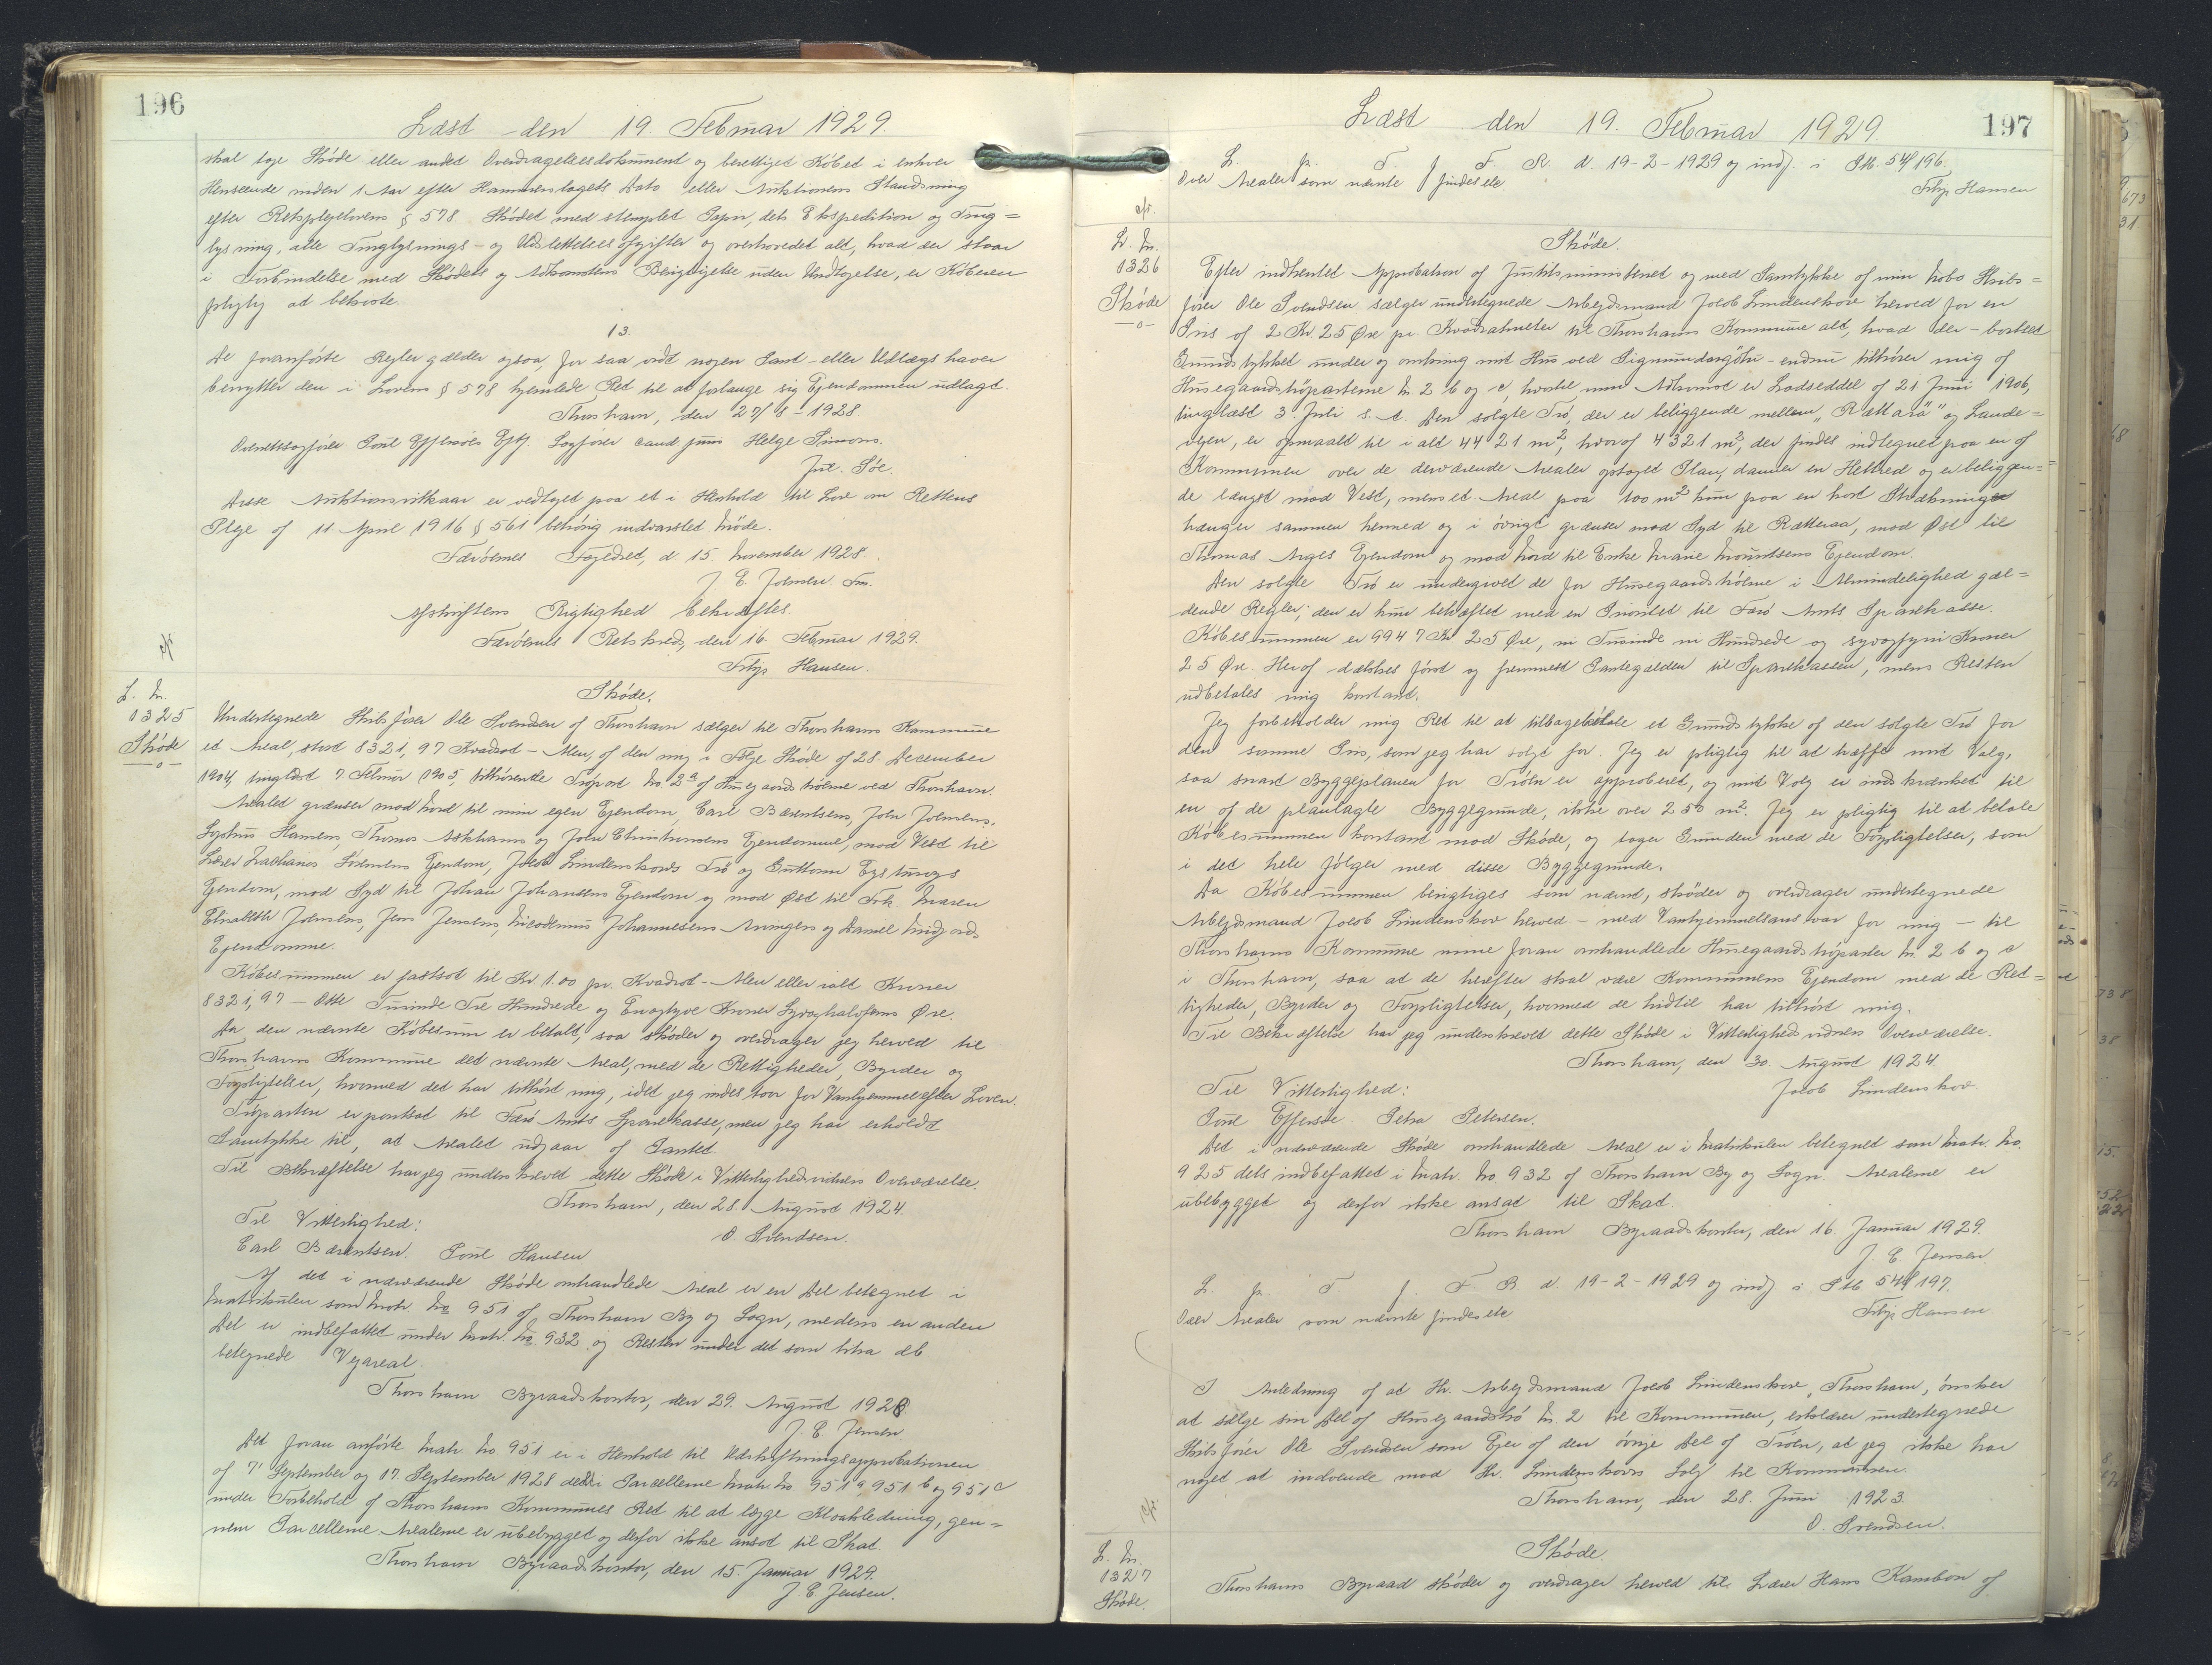 196
Læst den 19. Februar 1929.
skal tage Skøde eller andet Overdragelsesdokument og berettiget Købet i enhver
Henseende inden 1 Aar efter Hammerslagets Dato eller Auktionens Slutning
efter Retsplejelovens § 578. Skødet med stemplet Papir, dets Ekspedition og Ting=
lysning, alle Tinglysnings- og Udslettelsesafgifter og overhovedet alt, hvad der staar
i Forbindelse med Skødets og Adkomstens Berigtigelse uden Undtagelse, er Køberen
pligtig at bekoste.
13.
De foranførte Regler gælder ogsaa, for saa vidt nogen Pant- eller Udlægshaver
benytter den i Lovens § 578 hjemlede Ret til at forlange sig Ejendommen udlagt.
Thorshavn, den 27/8 - 1928.
Overretssagfører Poul Effersøes Eftf. Sagfører cand. juris Helge Simons.
Disse Auktionsvilkaar er vedtaget paa et i Henhold til Lov om Rettens
Pleje af 11 April 1916 § 561 behørig indvarslet Møde.
Færøernes Fogedret, d 15. November 1928.
J. E. Joensen. Fm.
Afskriftens Rigtighed bekræftes.
Færøernes Retskreds, den 16. Februar 1929.
Frbjr. Hansen.
L. Nr.
1325
Skøde
-o-
Skøde.
Undertegnede Skibsfører Ole Svendsen af Thorshavn sælger til Thorshavns Kommune
et Areal, stort 8321,97 Kvadrat-Alen, af den mig i Følge Skøde af 28. December
1904, tinglæst 7. Februar 1905, tilhørende Trøpart No. 2a af Husegaardstrøerne ved Thorshavn.
Arealet grænser mod Nord til min egen Ejendom, Carl Bærentsens, John Joensens,
Sophus Hansens, Thomas Askhams og John Christiansens Ejendomme, mod Vest til
Lærer Zachariasens Ejendom, Jacob Lindenskovs Trø og Guttorm Eysturoys
Ejendom, mod Syd til Johan Johansens Ejendom og mod Øst til Frk. Maren
Elisabeth Joensens, Jens Jensens, Nicodemus Johannesens Arvingers og Daniel Midjords
Ejendomme.
Købesummen er fastsat til Kr 1.00 pr. Kvadrat-Alen eller ialt Kroner
8321,97 — Otte Tusinde Tre Hundrede og Enogtyve Kroner Syvoghalvfems Øre.
Da den nævnte Købesum er betalt, saa skøder og overdrager jeg herved til
Thorshavns Kommune det nævnte Areal, med de Rettigheder, Byrder og
Forpligtelser, hvormed det har tilhørt mig, idet jeg indestaar for Vanhjemmel efter Loven.
Trøparten er pantsat til Færø Amts Sparekasse, men jeg har erholdt
Samtykke til, at Arealet udgaar af Pantet.
Til Bekræftelse har jeg underskrevet dette Skøde i Vitterlighedsvidners Overværelse.
Thorshavn, den 28. August 1924.
Til Vitterlighed:
O. Svendsen.
Carl Bærentsen. Poul Hansen
Af det i nærværende Skøde omhandlede Areal er en Del betegnet i
Matrikulen som Matr. No 951 af Thorshavn By og Sogn, medens en anden
Del er indbefattet under Matr. No. 932 og Resten under det som litra ab
betegnede Vejareal.
Thorshavn Byraadskontor, den 29. August 1928
J. E. Jensen
Det foran anførte Matr. No. 951 er i Henhold til Udstykningsapprobationen
af 7' September og 17. September 1928 delt i Parcellerne Matr. No. 951a, 951b og 951c
under Forbehold af Thorshavns Kommunes Ret til at lægge Kloakledning, gen=
nem Parcellerne. Arealerne er ubebygget og derfor ikke ansat til Skat.
Thorshavn Byraadskontor, den 15. Januar 1929.
J. E. Jensen.
197
Læst den 19. Februar 1929
L. p. T. f. F. R. d. 19-2-1929 og indf. i Skb. 54/196.
Over Arealer som nævnte findes ek.
Frbjr Hansen
L. Nr.
1326
Skøde
-o-
Skøde.
Efter indhentet Approbation af Justitsministeriet og med Samtykke af min Nabo Skibs=
fører Ole Svendsen sælger undertegnede Arbejdsmand Jacob Lindenskov herved for en
Pris af 2 Kr. 25 Øre pr. Kvadratmeter til Thorshavns Kommune alt, hvad der - bortset
Grundstykket under og omkring mit Hus ved Sigmundargøtu - endnu tilhører mig af
Husegaardstrøparterne Nr. 2 b og c, hvortil min Adkomst er Lodseddel af 21. Juni 1906,
tinglæst 3. Juli s. A. Den solgte Trø, der er beliggende mellem „Rættará” og Lande=
vejen, er opmaalt til i alt 4421 m², hvoraf 4321 m², der findes indtegnet paa en af
Kommunen over de derværende Arealer optaget Plan, danner en Helhed og er beliggen=
de længst mod Vest, mens et Areal paa 100 m² kun paa en kort Strækning
hænger sammen hermed og i øvrigt grænser mod Syd til Rætteraa, mod Øst til
Thomas Arges Ejendom og mod Nord til Enke Marie Mouritsens Ejendom.
Den solgte Trø er undergivet de for Husegaardstrøerne i Almindelighed gæl=
dende Regler; den er kun behæftet med en Prioritet til Færø Amts Sparekasse.
Købesummen er 9947 Kr 25 Øre, ni Tusinde ni Hundrede og syvogfyrr Kroner
25 Øre. Heraf dækkes først og fremmest Pantegælden til Sparekassen, mens Resten
udbetales mig kontant.
Jeg forbeholder mig Ret til at tilbagekøbe et Grundstykke af den solgte Trø for
den samme Pris, som jeg har solgt for. Jeg er pligtig til at træffe mit Valg,
saa snart Byggeplanen for Trøen er approberet, og mit Valg er indskrænket til
en af de planlagte Byggegrunde, ikke over 250 m². Jeg er pligtig til at betale
Købesummen kontant mod Skøde, og tager Grunden med de Forpligtelser, som
i det hele følger med disse Byggegrunde.
Da Købesummen berigtiges som nævnt, skøder og overdrager undertegnede
Arbejdsmand Jacob Lindenskov herved - med Vanhjemmelsansvar for mig - til
Thorshavns Kommune mine foran omhandlede Husegaardstrøparter Nr. 2 b og c
i Thorshavn, saa at de herefter skal være Kommunens Ejendom med de Ret=
tigheder, Byrder og Forpligtelser, hvormed de hidtil har tilhørt mig.
Til Bekræftelse har jeg underskrevet dette Skøde i Vitterlighedsvidners Overværelse.
Thorshavn, den 30. August 1924.
Til Vitterlighed:
Jacob Lindenskov.
Poul Effersøe Petra Petersen.
Det i nærværende Skøde omhandlede Areal er i Matrikulen betegnet som Matr. No.
925 dels indbefattet i Matr. No 932 af Thorshavn By og Sogn. Arealerne er
ubebygget og derfor ikke ansat til Skat.
Thorshavn Byraadskontor, den 16. Januar 1929.
J. E. Jensen
L. p. T. f. F R. d. 19-2-1929 og indf i Skb. 54/197.
Over Arealer som nævnte findes ek
Frbjr Hansen
I Anledning af at Hr. Arbejdsmand Jacob Lindenskov, Thorshavn, ønsker
at sælge sin Del af Husegaardstrø Nr. 2 til Kommunen, erklærer undertegnede
Skibsfører Ole Svendsen som Ejer af den øvrige Del af Trøen, at jeg ikke har
noget at indvende mod Hr. Lindenskovs Salg til Kommunen.
Thorshavn, den 28. Juni 1923.
O. Svendsen.
L. Nr.
1327
Skøde.
Skøde.
Thorshavns Byraad skøder og overdrager herved til Lærer Hans Kambon af